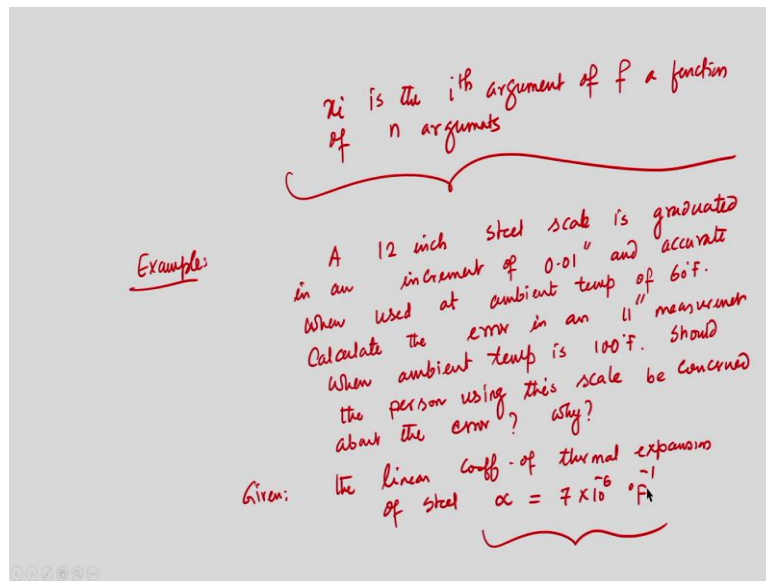 xi is the ith argument of f a function
of n arguments
Examples
A 12 inch steel scale is graduated
in an increment of 0.01" and accurate
when used at ambient temp of 60°F.
Calculate the error in an 11" measurement
when ambient temp is 100°F. Should
the person using this scale be concerned
about the error? why?
Given: the linear coeff. of thermal expansion
of steel α = 7 × 10⁻⁶ °F⁻¹